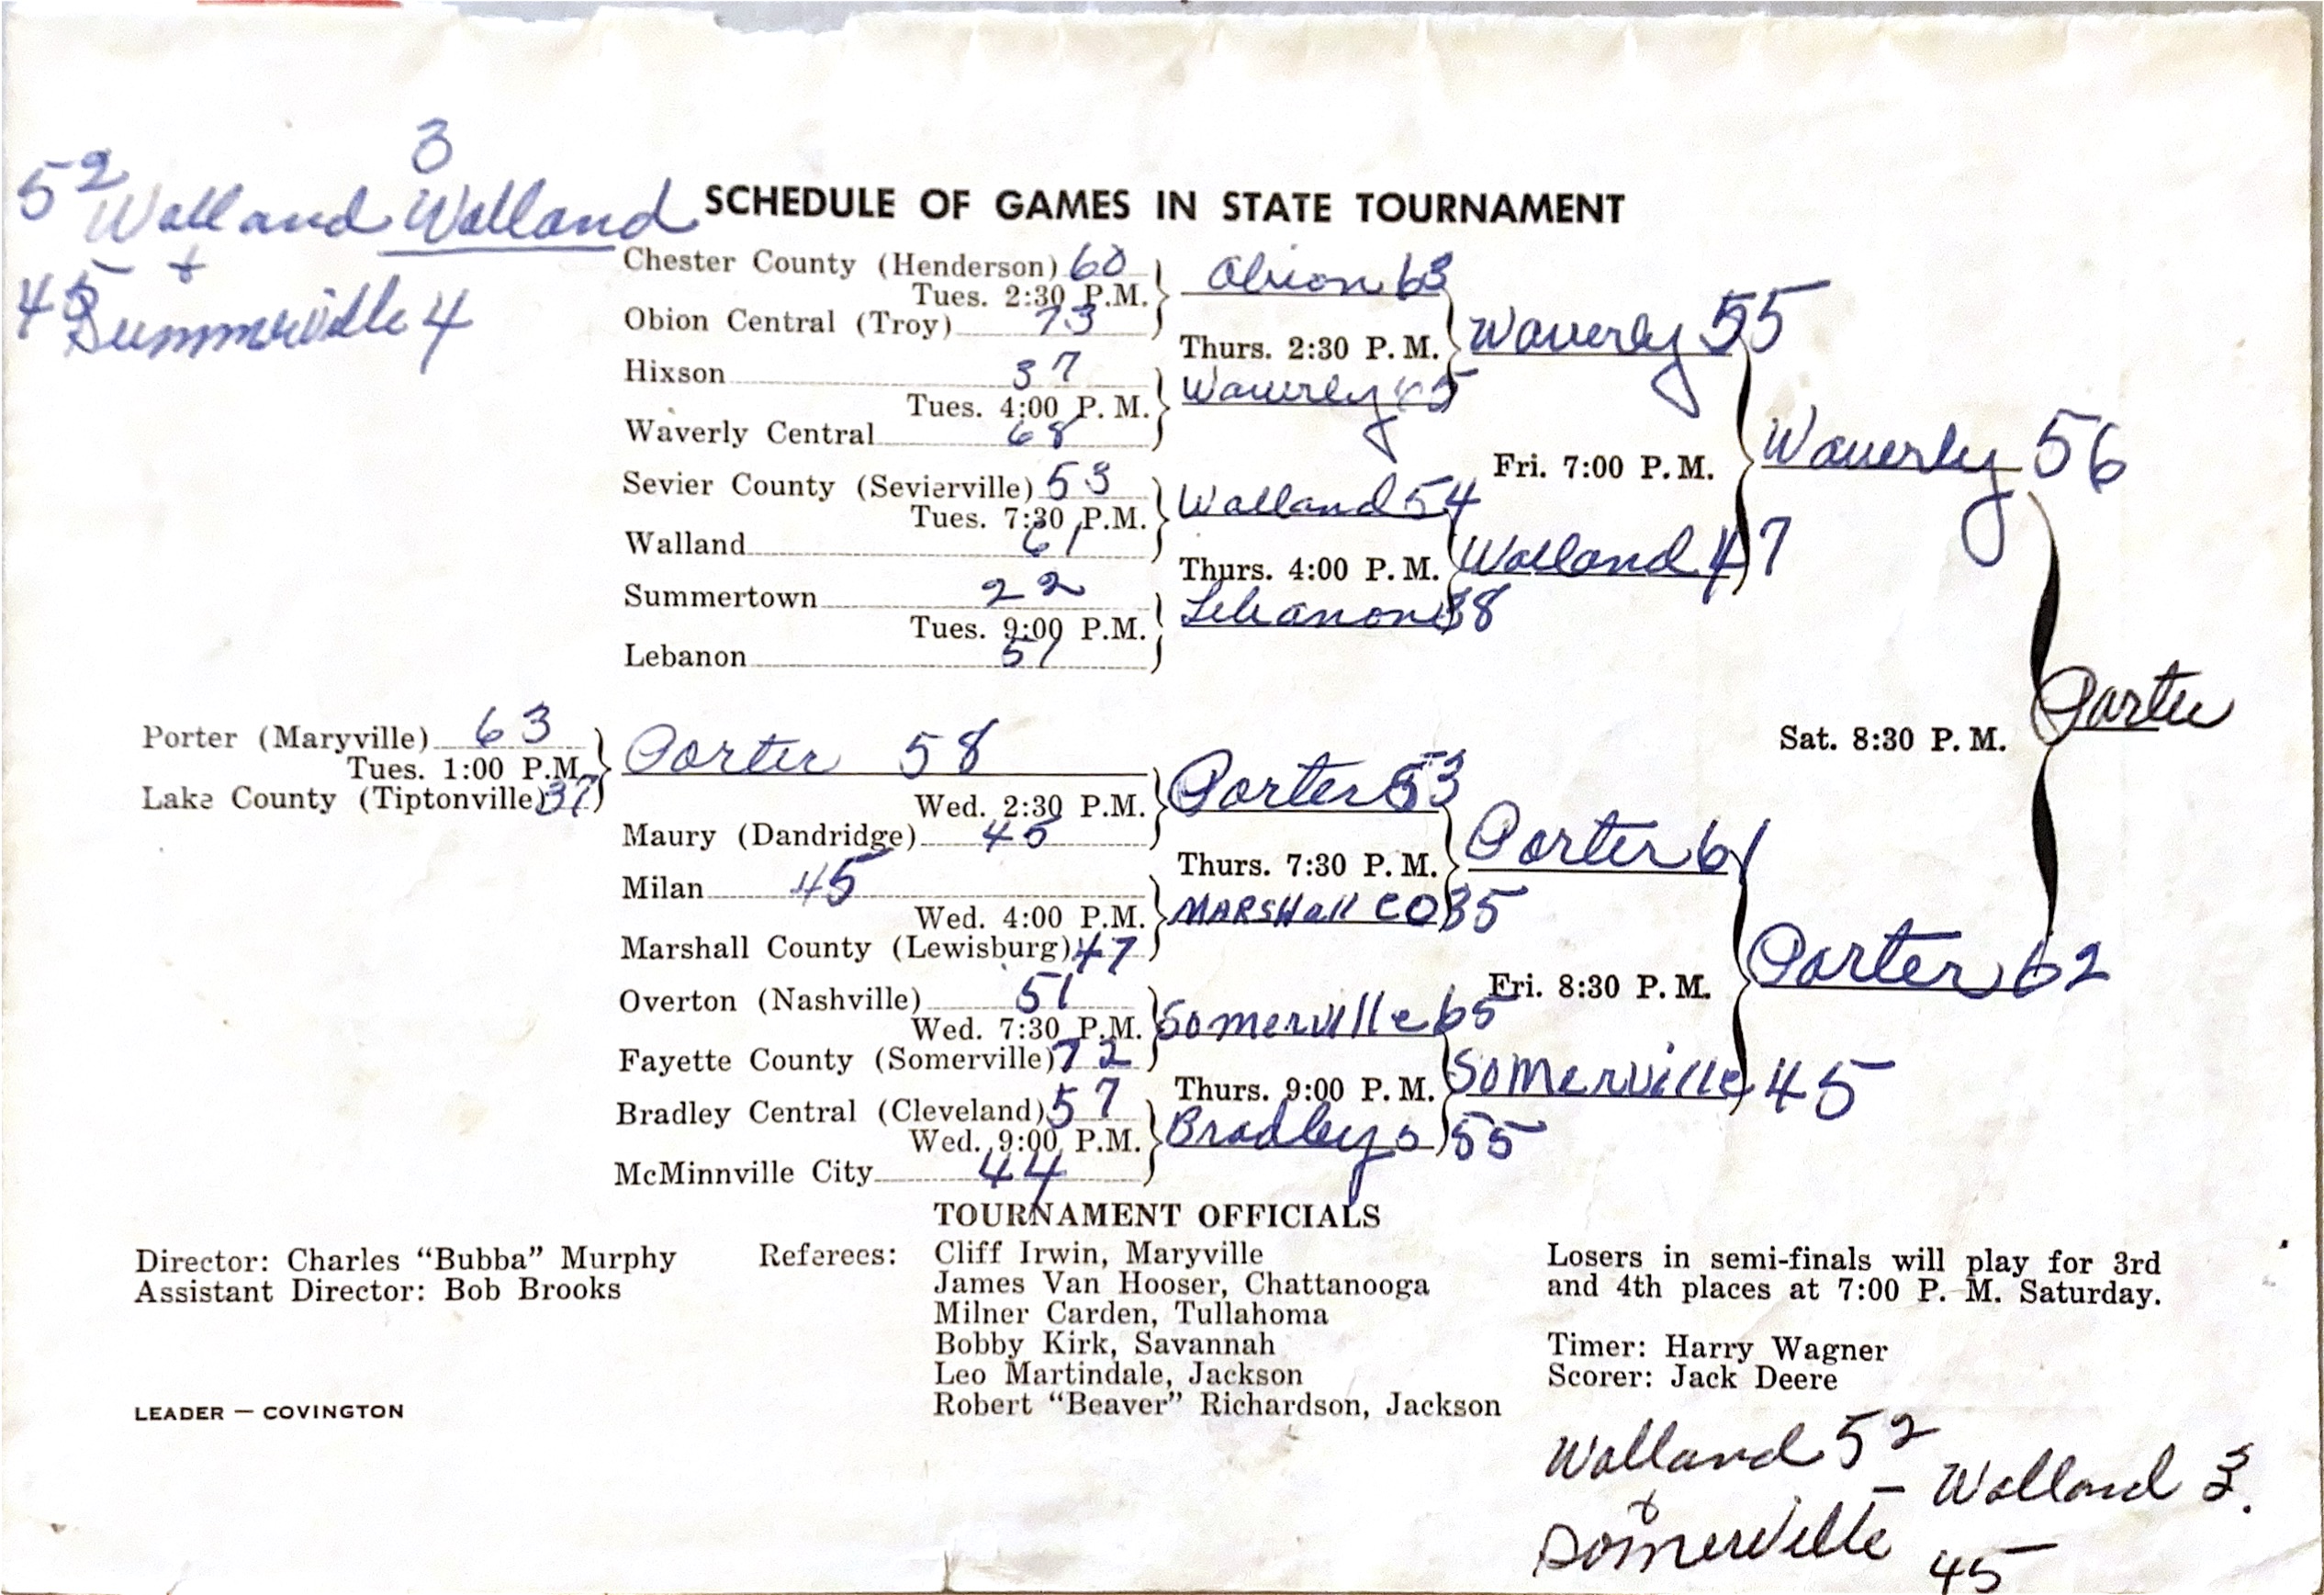 3
52
Walland Walland
+
45
Summerville 4
SCHEDULE OF GAMES IN STATE TOURNAMENT
Chester County (Henderson) 60
Tues. 2:30 P.M.
Obion Central (Troy) 73
Obion 63
Thurs. 2:30 P.M.
Hixson 37
Tues. 4:00 P.M.
Waverly Central 68
Waverly
Waverly 55
Fri. 7:00 P.M.
Sevier County (Sevierville) 53
Tues. 7:30 P.M.
Walland 61
Walland 54
Thurs. 4:00 P.M.
Summertown 22
Tues. 9:00 P.M.
Lebanon 51
Lebanon 38
Walland 47
Waverly 56
Sat. 8:30 P.M.
Porter
Porter (Maryville) 63
Tues. 1:00 P.M.
Lake County (Tiptonville) 37
Porter 58
Wed. 2:30 P.M.
Maury (Dandridge)
Porter 53
Thurs. 7:30 P.M.
Milan 45
Wed. 4:00 P.M.
Marshall County (Lewisburg) 47
MARSHall CO 35
Porter 61
Fri. 8:30 P.M.
Overton (Nashville) 51
Wed. 7:30 P.M.
Fayette County (Somerville) 72
Somerville 65
Thurs. 9:00 P.M.
Bradley Central (Cleveland) 57
Wed. 9:00 P.M.
McMinnville City 44
Bradley 55
Somerville 45
Porter 62
TOURNAMENT OFFICIALS
Director: Charles "Bubba" Murphy
Assistant Director: Bob Brooks
Referees: Cliff Irwin, Maryville
James Van Hooser, Chattanooga
Milner Carden, Tullahoma
Bobby Kirk, Savannah
Leo Martindale, Jackson
Robert "Beaver" Richardson, Jackson
Losers in semi-finals will play for 3rd
and 4th places at 7:00 P. M. Saturday.
Timer: Harry Wagner
Scorer: Jack Deere
LEADER — COVINGTON
Walland 52
+ – Walland 3.
Somerville 45